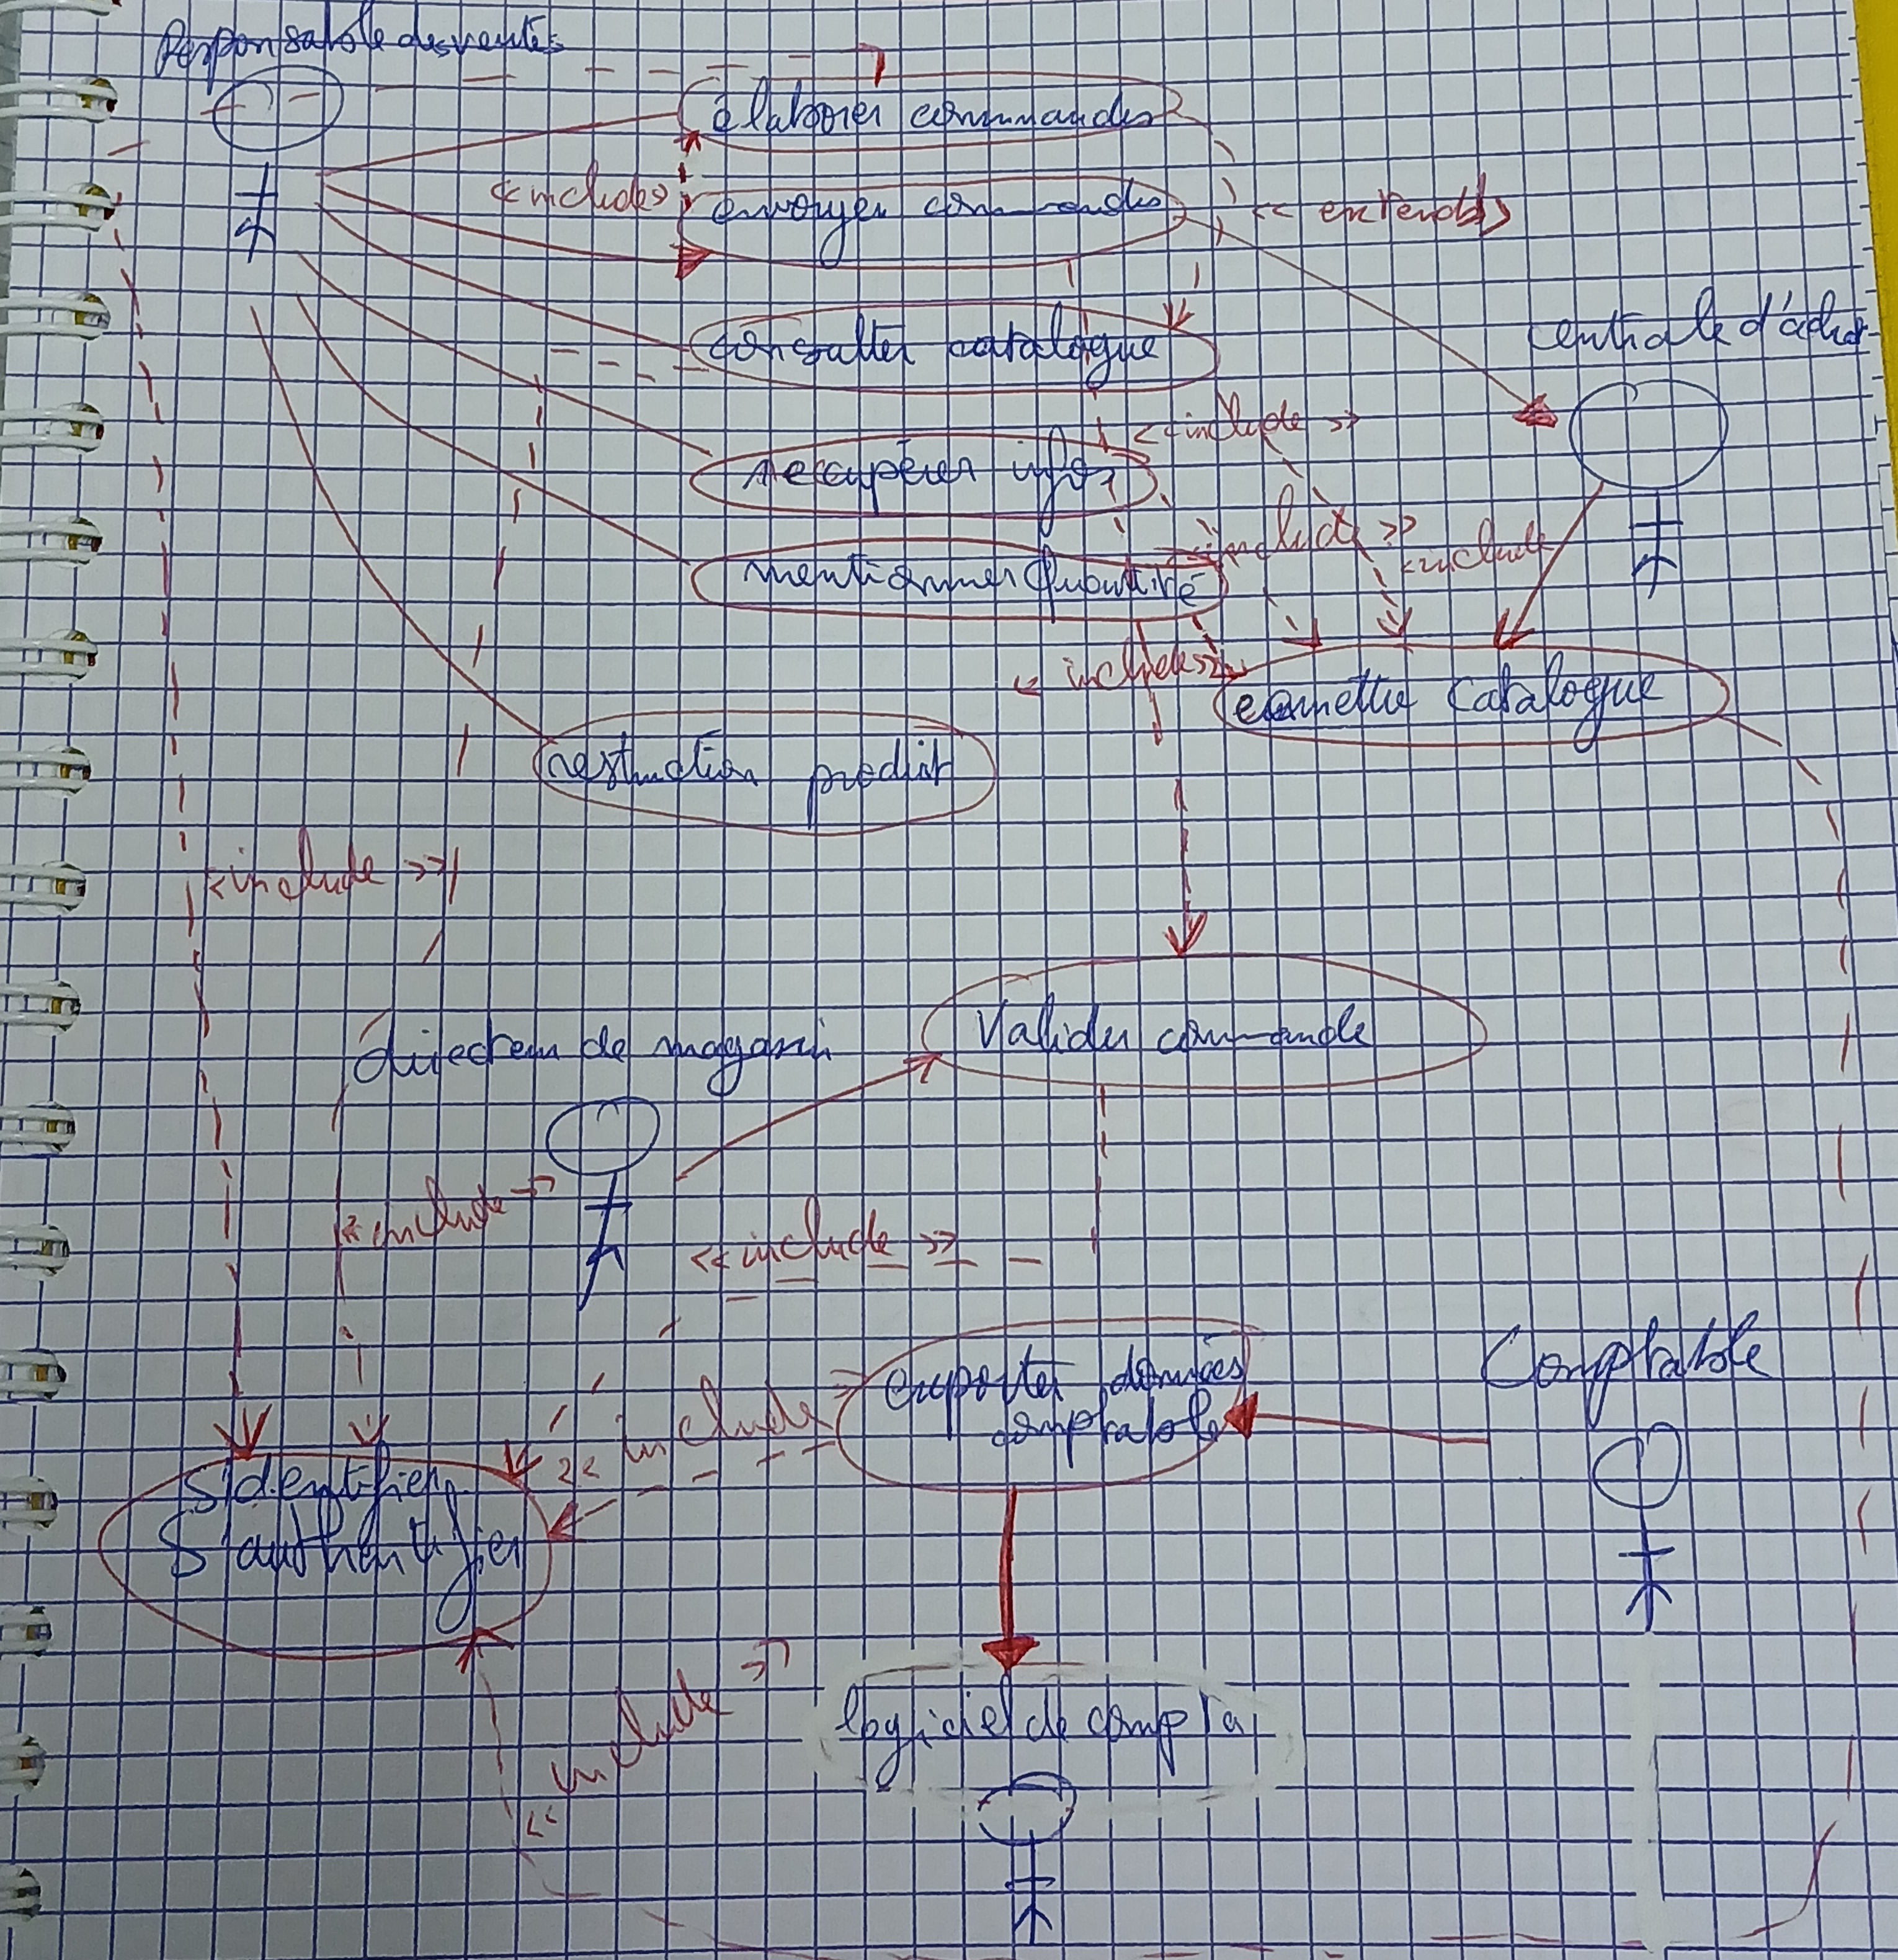 Responsable des ventes
élaborer commandes
<<includes>>
envoyer commandes
<< extends>>
centrale d'achat
consulter catalogue
<<include>>
recupérer info
<<include>>
<include
mentionner Quantité
<<includes>>
emettre catalogue
restruction produit
<include>>
Valider commande
directeur de magasin
<<include>>
<<include>>
exporter données
comptable
Comptable
<< include
S'identifier
S'authentifier
<< include >>
logiciel de compta